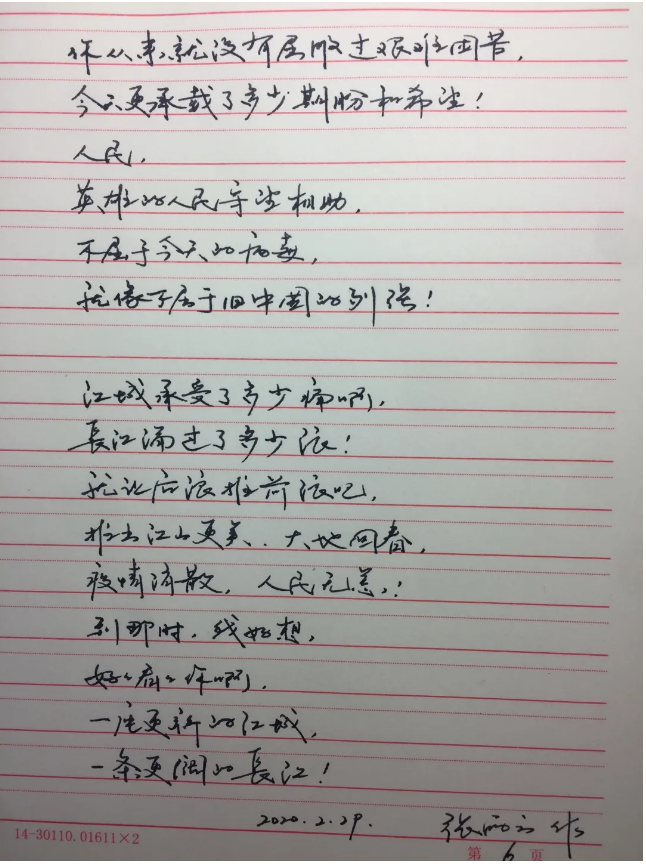 你从来就没有屈服过艰难困苦，
今天更承载了多少期盼和希望！
人民，
英雄的人民守望相助，
不屈于今天的病毒，
就像不屈于旧中国的列强！
江城承受了多少痛啊，
長江涌过了多少浪！
就让后浪推前浪吧，
推出江山更美、大地回春，
疫情消散，人民无恙！
到那时，我好想，
好好看你啊，
一座更新的江城，
一条更阔的長江！
2020.2.29.
作
14-30110.01611×2
第6页